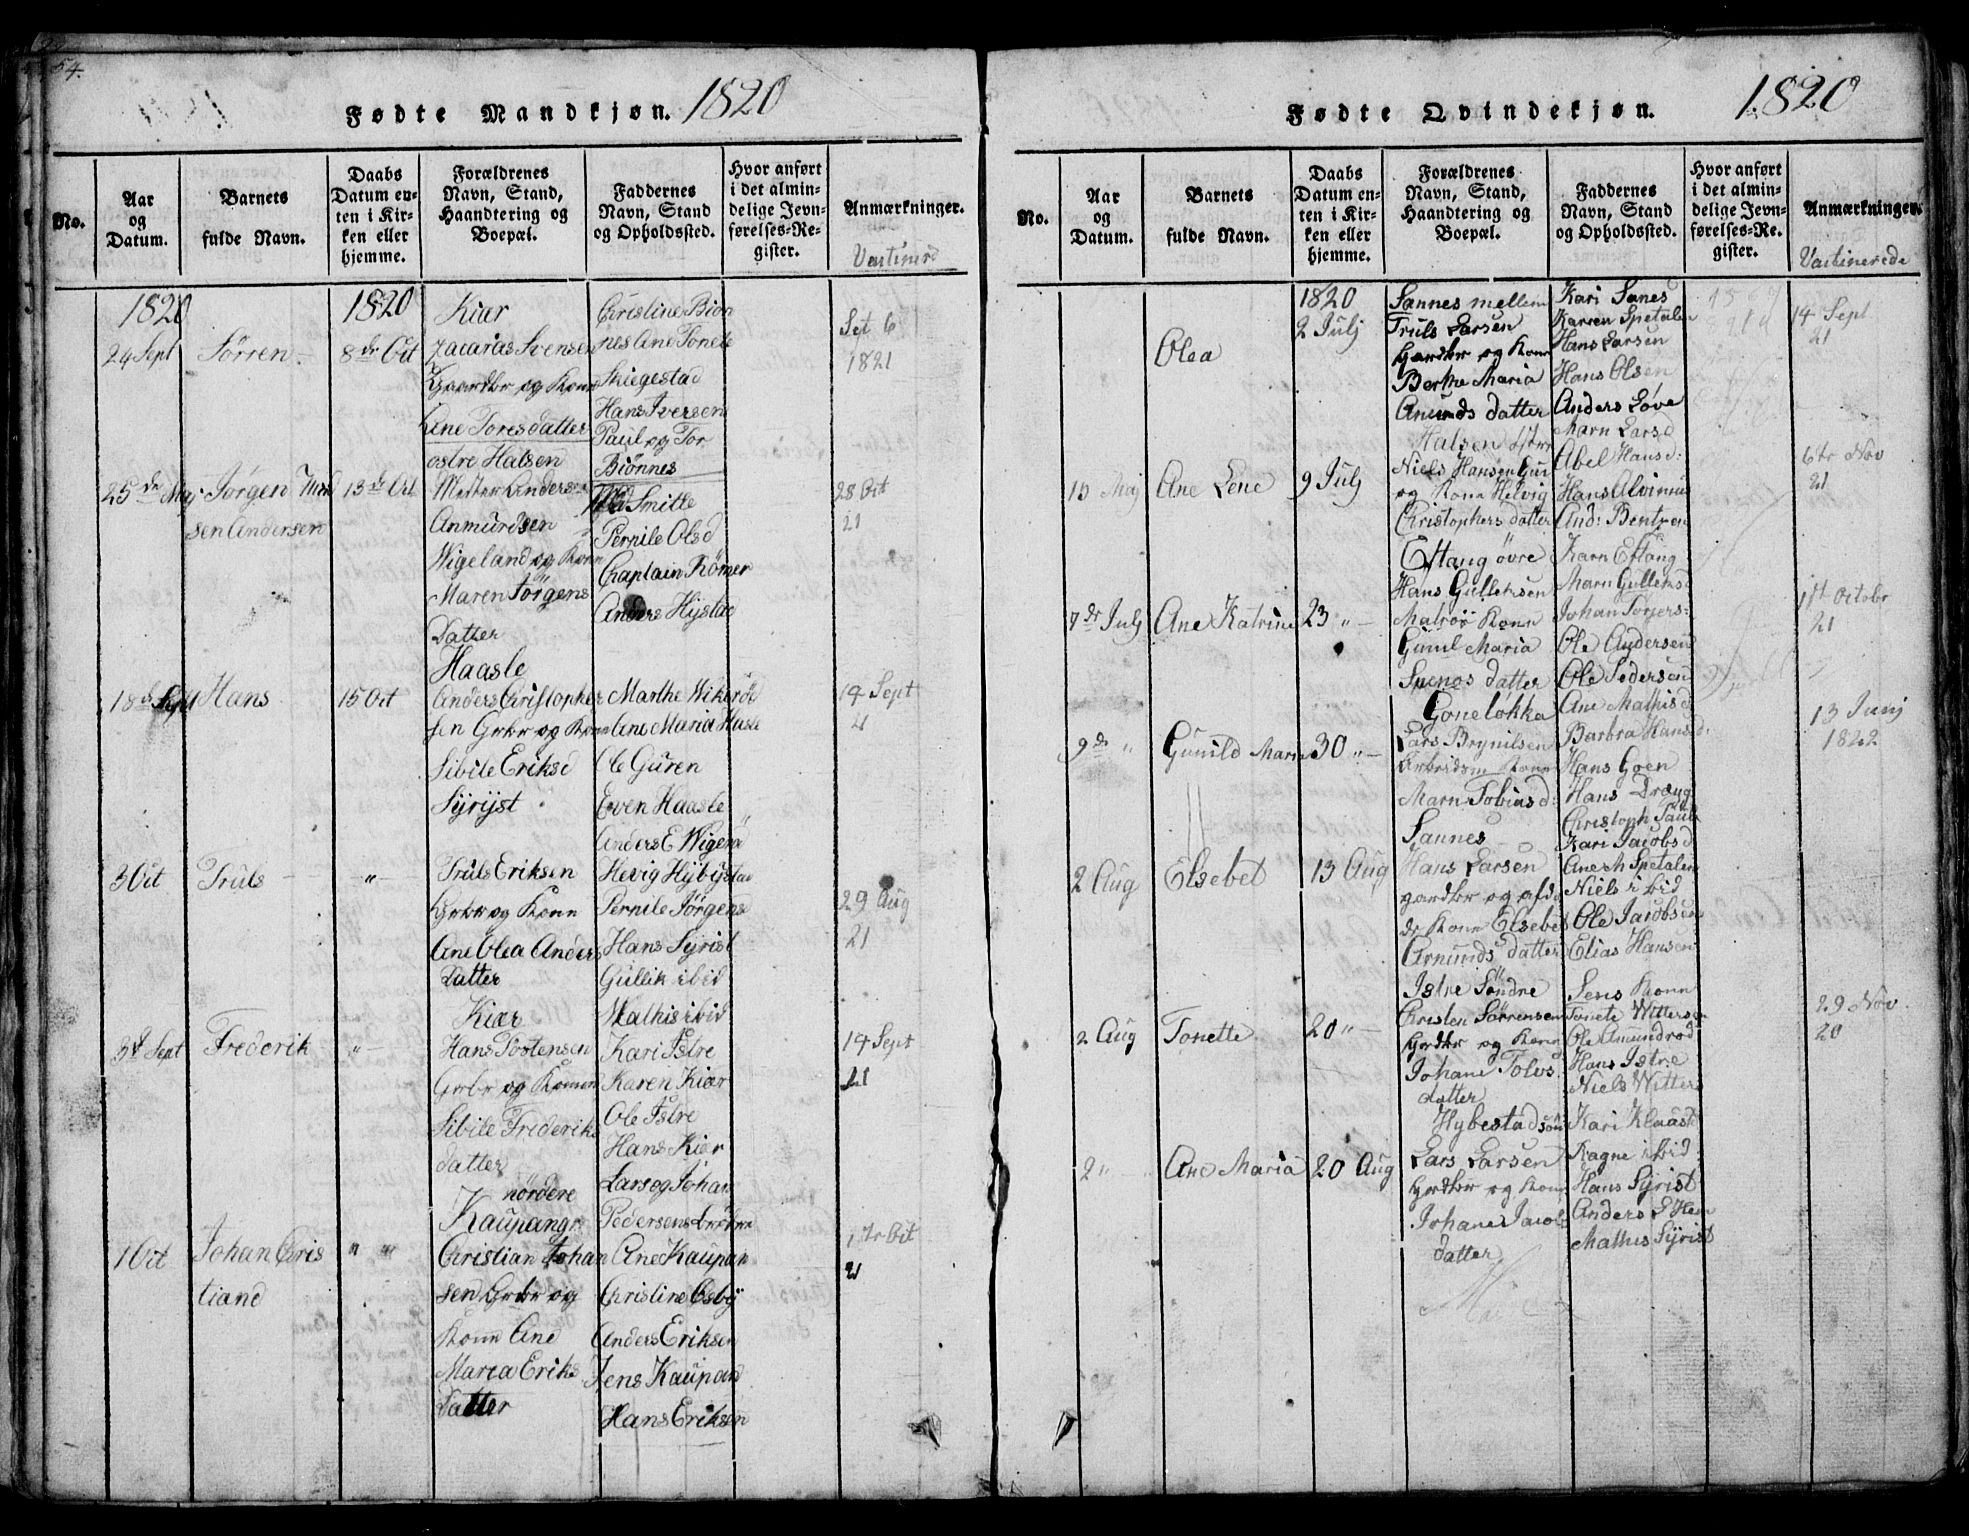 54.
Fødte Mandkjøn. 1820
No.
Aar
og
Datum.
Barnets
fulde Navn.
Daabs
Datum en-
ten i Kir-
ken eller
hjemme.
Forældrenes
Navn, Stand,
Haandtering og
Boepæl.
Faddernes
Navn, Stand
og Opholdssted.
Hvor anført
i det almin-
delige Jevn-
førelses-Re-
gister.
Anmærkninger.
1820
24 Sept
Sørren
1820
8de Oct
Kiær
Zacarias Svensen
Gaardbr og Kone
Ane Toresdatter
Christine Biøn
nes Ane Tonete
Skiegestad
Hans Iversen
Paul og Tor
Biønnes
Set 6
1821
25de Maj
Jørgen
sen Andersen
13de Oct
østre Halsen
Anmundsen
Wigeland og Kone
Maren Jørgens
Datter
Smitte
Pernile Olsd
Chaplain Rømer
Anders Hystad
28 Oct
21
18de Sept
Hans
15 Oct
Haasle
Anders Christopher
sen Grbr og Kone
Sibile Eriksd
Marthe Wikerød
Ane Maria Hasle
Ole Guren
Even Haasle
Anders E Wigerød
14 Sept
21
3 Oct
Truls
"
Syrist
Truls Eriksen
Grbr og Kone
Ane Olea Anders
Datter
Hevig Hybystad
Pernile Jørgens
Hans Syrist
Gullik ibid
Mathis ibid
29 Aug
21
3d Sept
Frederik
"
Kiær
Hans Tostensen
Grbr og Konen
Sibile Frederiks
datter
Kari Istre
Karen Kiær
Ole Istre
Hans Kiær
Lars og Johan
14 Sept
21
1 Oct
Johan Chris
tiand
" "
nordere
Kaupang
Christian Johan
sen Grbr og
Kone Ane
Maria Eriks
Datter
Pedersens
Ane Kaupan
Christine Osby
Anders Eriksen
Jens Kaupand
Hans Eriksen
1te Oct
21
Fødte Qvindekjøn. 1820
No.
Aar
og
Datum.
Barnets
fulde Navn.
Daabs
Datum en-
ten i Kir-
ken eller
hjemme.
Forældrenes
Navn, Stand,
Haandtering og
Boepæl.
Faddernes
Navn, Stand
og Opholdssted.
Hvor anført
i det almin-
delige Jevn-
førelses-Re-
gister.
Anmærkninger.
Olea
1820
2 Julj
Sannes mellem
Truls Larsen
Gardbr og Kone
Berthe Maria
Anunds datter
Kari Sanes
Karren Spetalen
Hans Larsen
Hans Olsen
Anders Løve
14 Sept
21
15 Maj
Ane Lene
9 Julj
Halsen
Niels Hansen
og Kone Helvig
Christophers datter
Marn Larsd
Abel Hansd:
Hans
And: Bentsen
6te Nov
21
7de Julj
Ane Katrine
23 "
Eftang øvre
Hans Gulleksen
Matrós Kone
Gunil Maria
datter
Karn Eftang
Marn Gulleksd
Johan Torjers:
Ole Andersen
Ole Pedersen
1st Octobr
21
9de "
Gunild Maria
30 "
Goneløkka
Lars Brynilsen
Arbeidsm Kone
Marn Tobiasd:
Ane Mathisd
Barbra Hansd:
Hans Goen
Hans Dræng
Christoph
13 Junj
1822
2 Aug
Elsebet
13 Aug
Sannes
Hans Larsen
gardbr og afdø
de Kone Elsebet
Amunds datter
Kari Jacobsd
Ane M Spetalen
Niels ibid
Ole Jacobsen
Elias Hansen
2 Aug
Tonette
20 "
Istre Søndre
Christen Sørrensen
Grdbr og Kone
Johane Tolvs
datter
Jens Kone
Tonete Witters
Ole Amundrød
Hans Istre
Niels Witters
29 Nov
20
2 "
Ane Maria
20 Aug
Hybestad
Lars Larsen
Grdbr og Kone
Johane Jacobs
datter
Kari Klaasd
Ragne ibid
Hans Syrist
Anders
Mathis Syrist